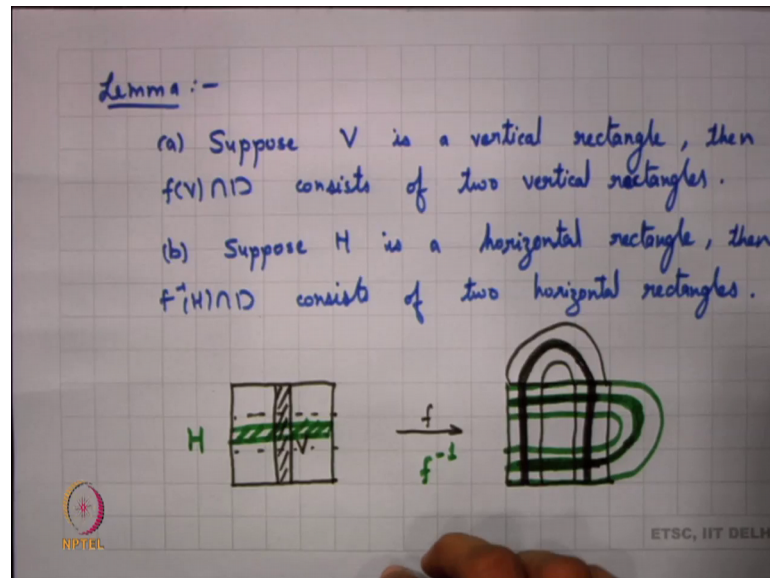 Lemma :-
(a) Suppose V is a vertical rectangle, then
f(V)∩D consists of two vertical rectangles.
(b) Suppose H is a horizontal rectangle, then
f⁻¹(H)∩D consists of two horizontal rectangles.
H
V
f
f⁻¹
NPTEL
ETSC, IIT DELH